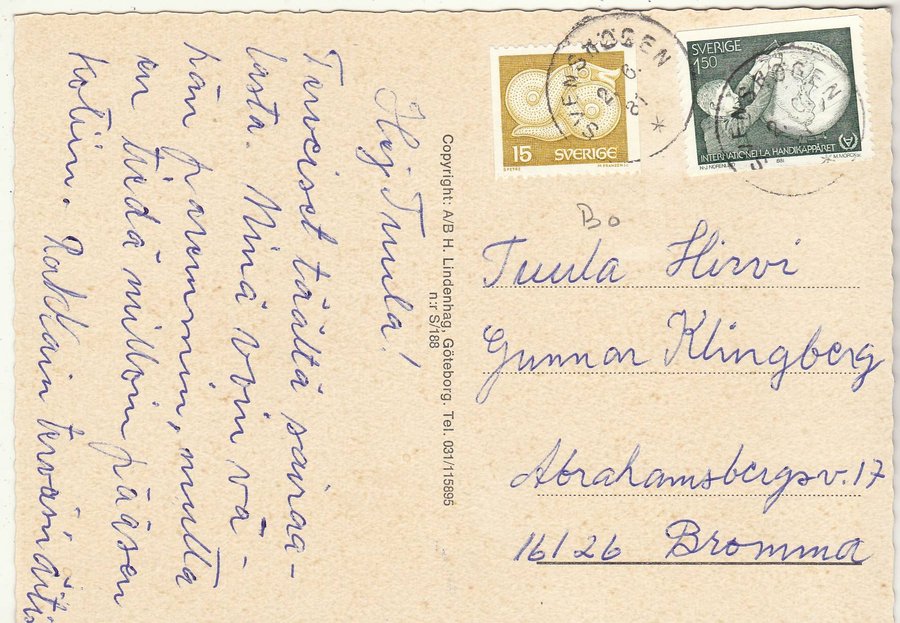 Hej Tuula!
Terveiset täältä sairaa-
lasta. Minä voin vä-
hän paremmin, mutta
en tiedä milloin pääsen
kotiin. Rakkain terveisin äiti
Copyright: A/B H. Lindenhag, Göteborg. Tel. 031/115895
n:r S/188
15 SVERIGE
SVERIGE
150
INTERNATIONELLA HANDIKAPPÅRET
SVENSHØGEN
Bo
Tuula Hirvi
Gunnar Klingberg
Abrahamsbergsv. 17
16126 Bromma